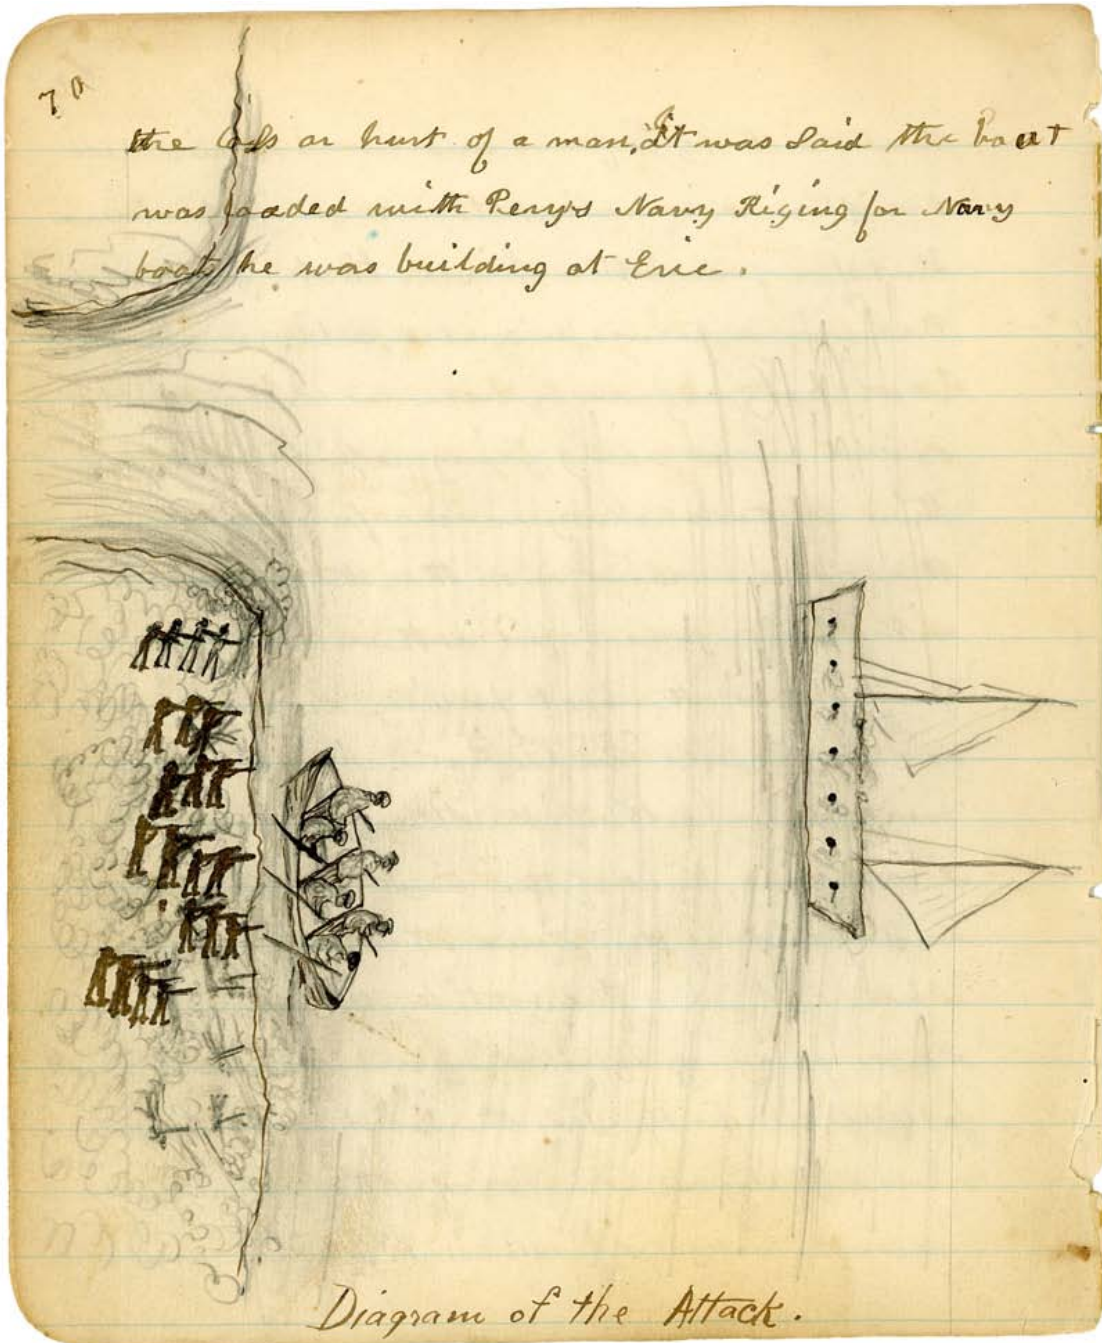 70
the loss or hurt of a man, It was Said the boat
was loaded with Perrys Navy Riging for Navy
boats he was building at Erie.
Diagram of the Attack.